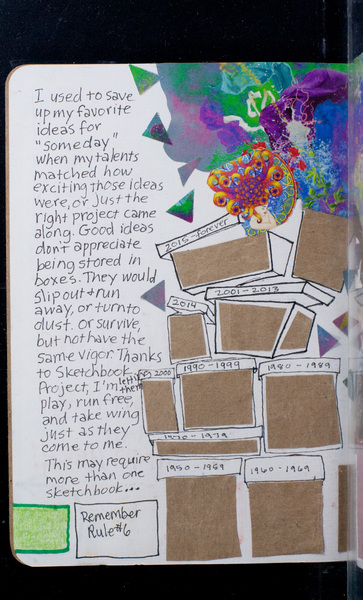 I used to save
up my favorite
ideas for
"someday"
when my talents
matched how
exciting those ideas
were, or just the
right project came
along. Good ideas
don't appreciate
being stored in
boxes. They would
slip out + run
away, or turn to
dust. Or survive,
but not have the
same vigor. Thanks
to Sketchbook
Project, I'm letting them
play, run free,
and take wing
just as they
come to me.
This may require
more than one
sketchbook...
Remember
Rule #6
2015-forever
2001-2013
2014
2000
1990-1999
1980-1989
1970-1979
1950-1959
1960-1969